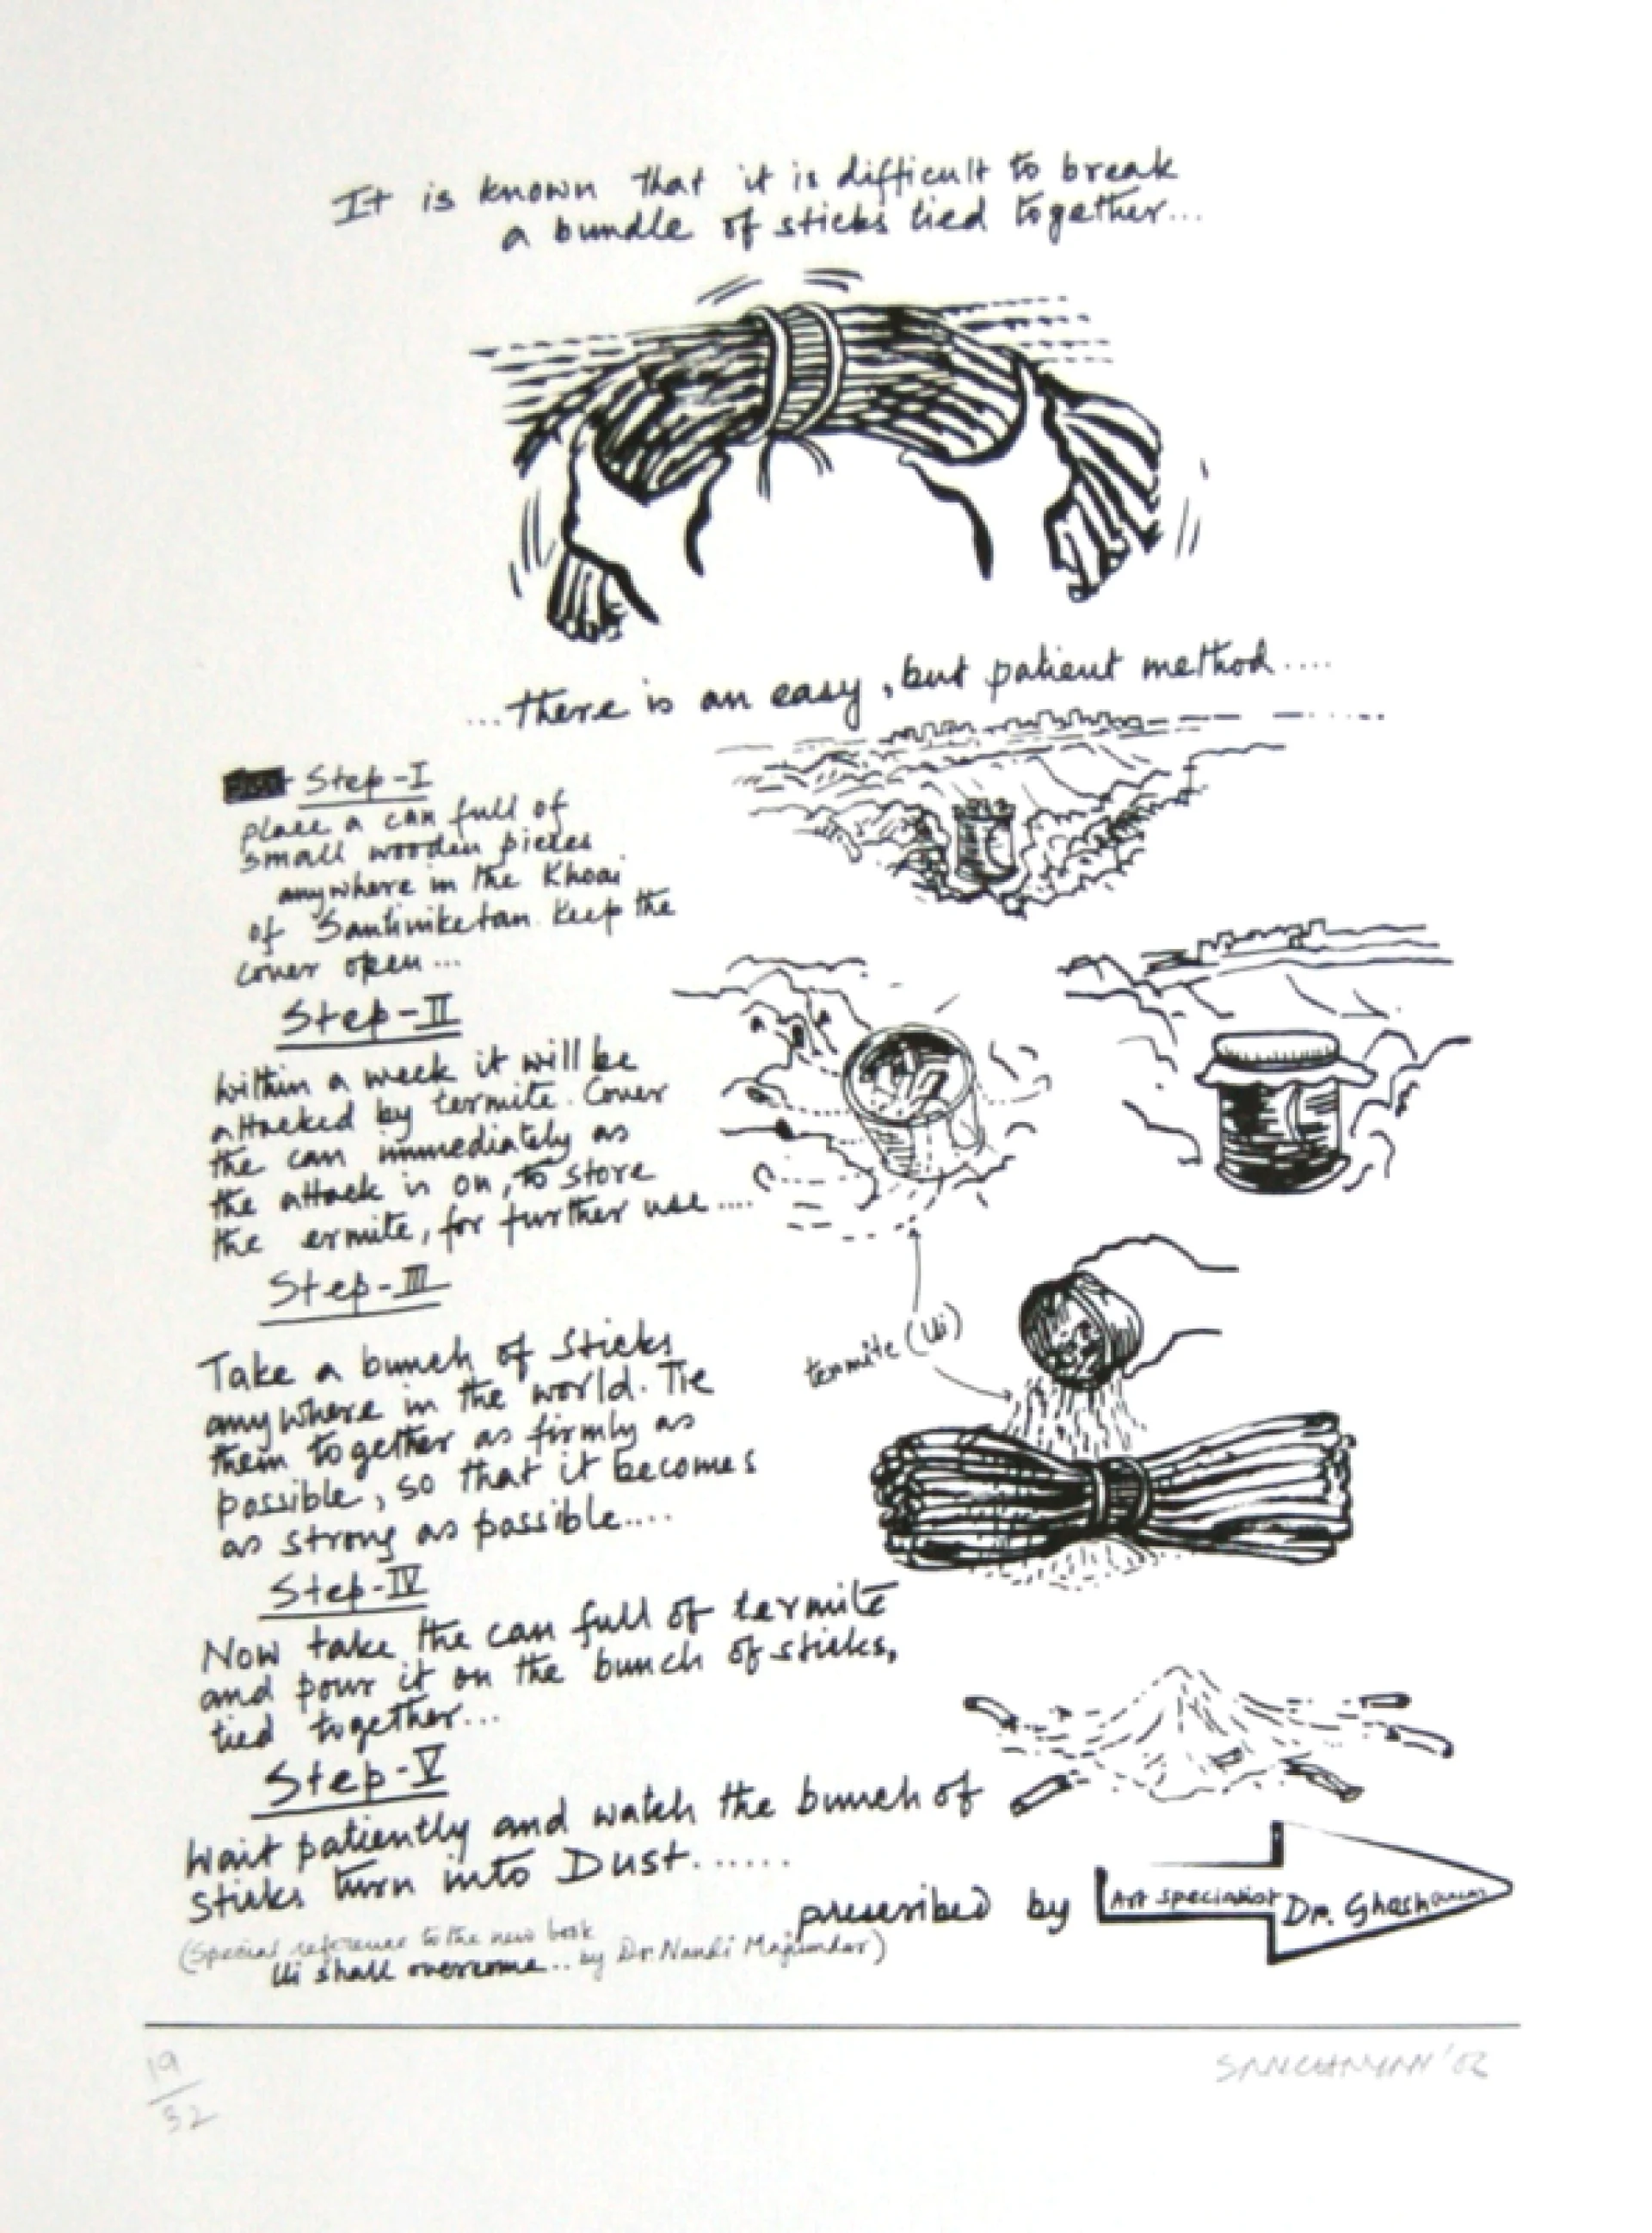 It is known that it is difficult to break
a bundle of sticks tied together...
...there is an easy, but patient method....
Step-I
place a can full of
small wooden pieces
anywhere in the Khoai
of Santiniketan. Keep the
cover open...
Step-II
Within a week it will be
attacked by termite. Cover
the can immediately as
the attack is on, to store
the ermite, for further use....
termite (Ui)
Step-III
Take a bunch of sticks
anywhere in the world. Tie
them together as firmly as
possible, so that it becomes
as strong as possible....
Step-IV
Now take the can full of termite
and pour it on the bunch of sticks,
tied together...
Step-V
Wait patiently and watch the bunch of
sticks turn into Dust......
prescribed by Art specialist Dr.
(Special reference to the new book
Ui shall overcome.. by Dr. Nandi Majumdar)
19/32
SANCHAYAN '02